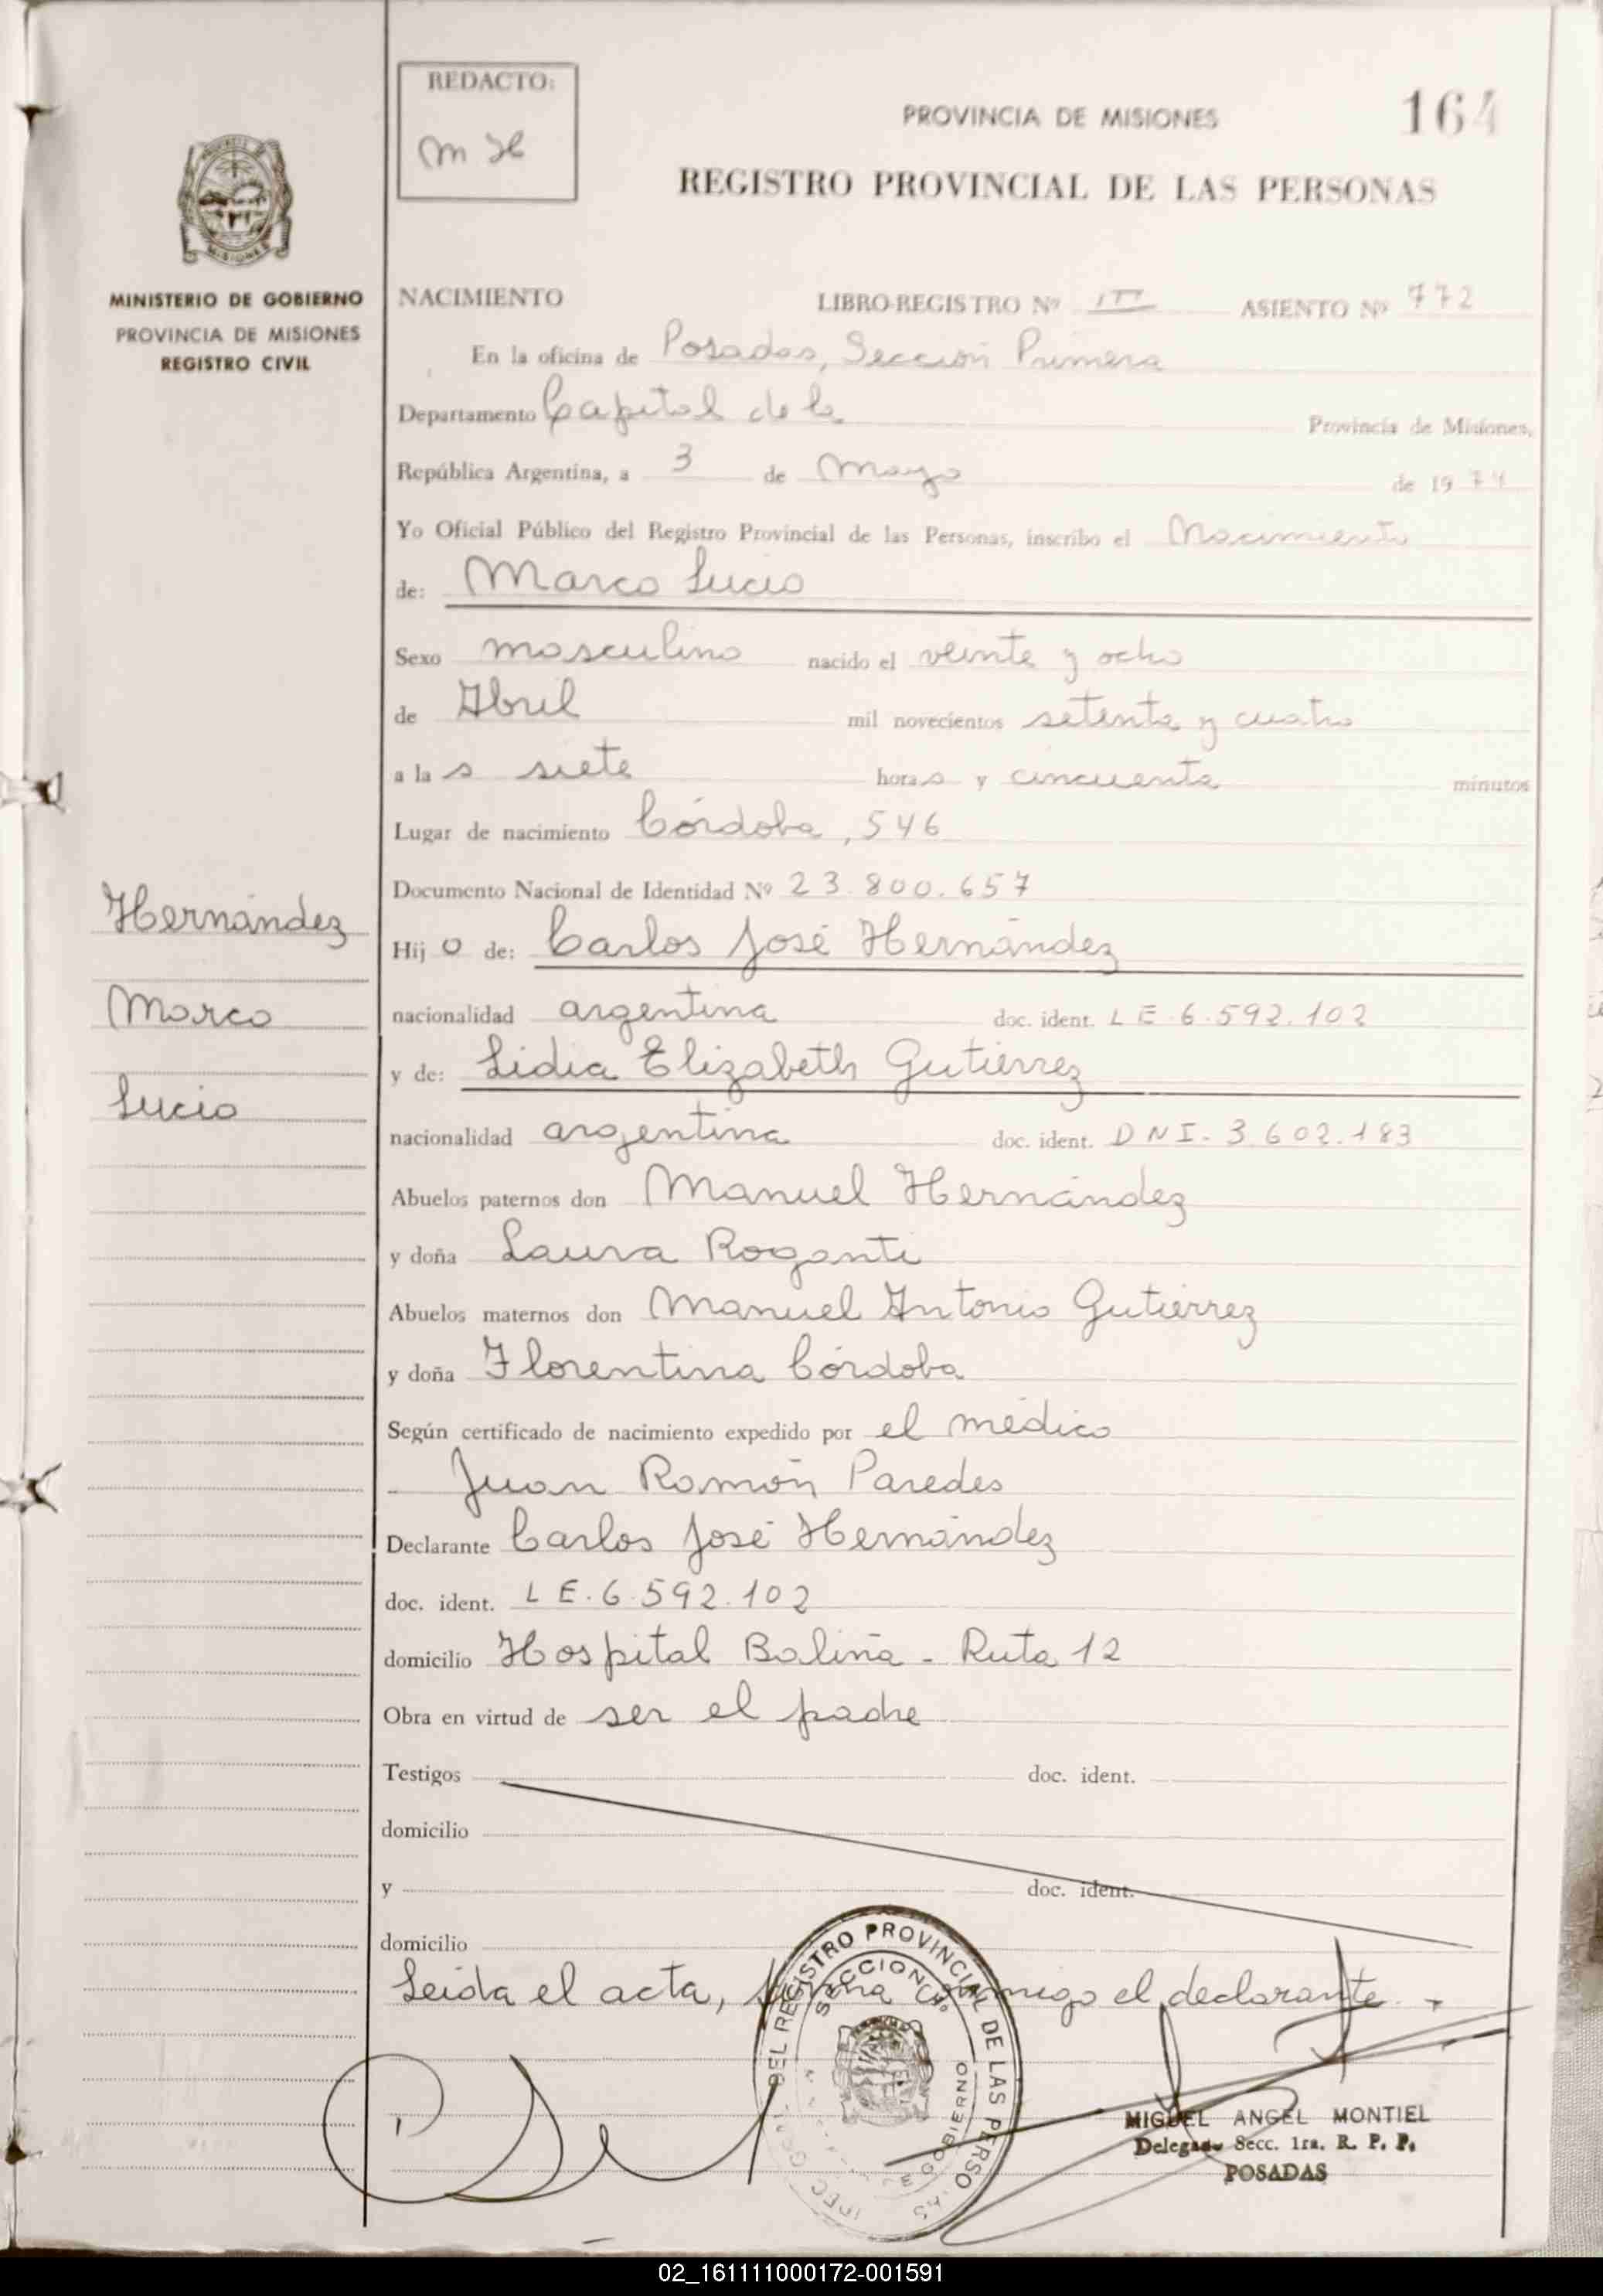 REDACTO:
164
PROVINCIA DE MISIONES
REGISTRO PROVINCIAL DE LAS PERSONAS
MISIONES
MINISTERIO DE GOBIERNO
PROVINCIA DE MISIONES
REGISTRO CIVIL
NACIMIENTO LIBRO-REGISTRO Nº III ASIENTO Nº 772
En la oficina de Posadas, Sección Primera
Departamento Capital de la Provincia de Misiones,
República Argentina, a 3 de Mayo de 1974
Yo Oficial Público del Registro Provincial de las Personas, inscribo el Nacimiento
de: Marco Lucio
Sexo masculino nacido el veinte y ocho
de Abril mil novecientos setenta y cuatro
a las siete horas y cincuenta minutos
Lugar de nacimiento Córdoba, 546
Documento Nacional de Identidad Nº 23.800.657
Hernández
Marco
Lucio
Hijo de: Carlos José Hernández
nacionalidad argentina doc. ident. LE.6.592.102
y de: Lidia Elizabeth Gutiérrez
nacionalidad argentina doc. ident. DNI-3.602.183
Abuelos paternos don Manuel Hernández
y doña Laura Roganti
Abuelos maternos don Manuel Antonio Gutiérrez
y doña Florentina Córdoba
Según certificado de nacimiento expedido por el médico
Juan Ramón Paredes
Declarante Carlos José Hernández
doc. ident. LE.6.592.102
domicilio Hospital Baliña - Ruta 12
Obra en virtud de ser el padre
Testigos doc. ident.
domicilio
y doc. ident.
domicilio
Leida el acta, firma conmigo el declarante.-
DEL REGISTRO PROVINCIAL DE LAS PERSONAS
SECCION
GOBIERNO
MIGUEL ANGEL MONTIEL
Delegado Secc. 1ra. R. P. P.
POSADAS
02_161111000172-001591